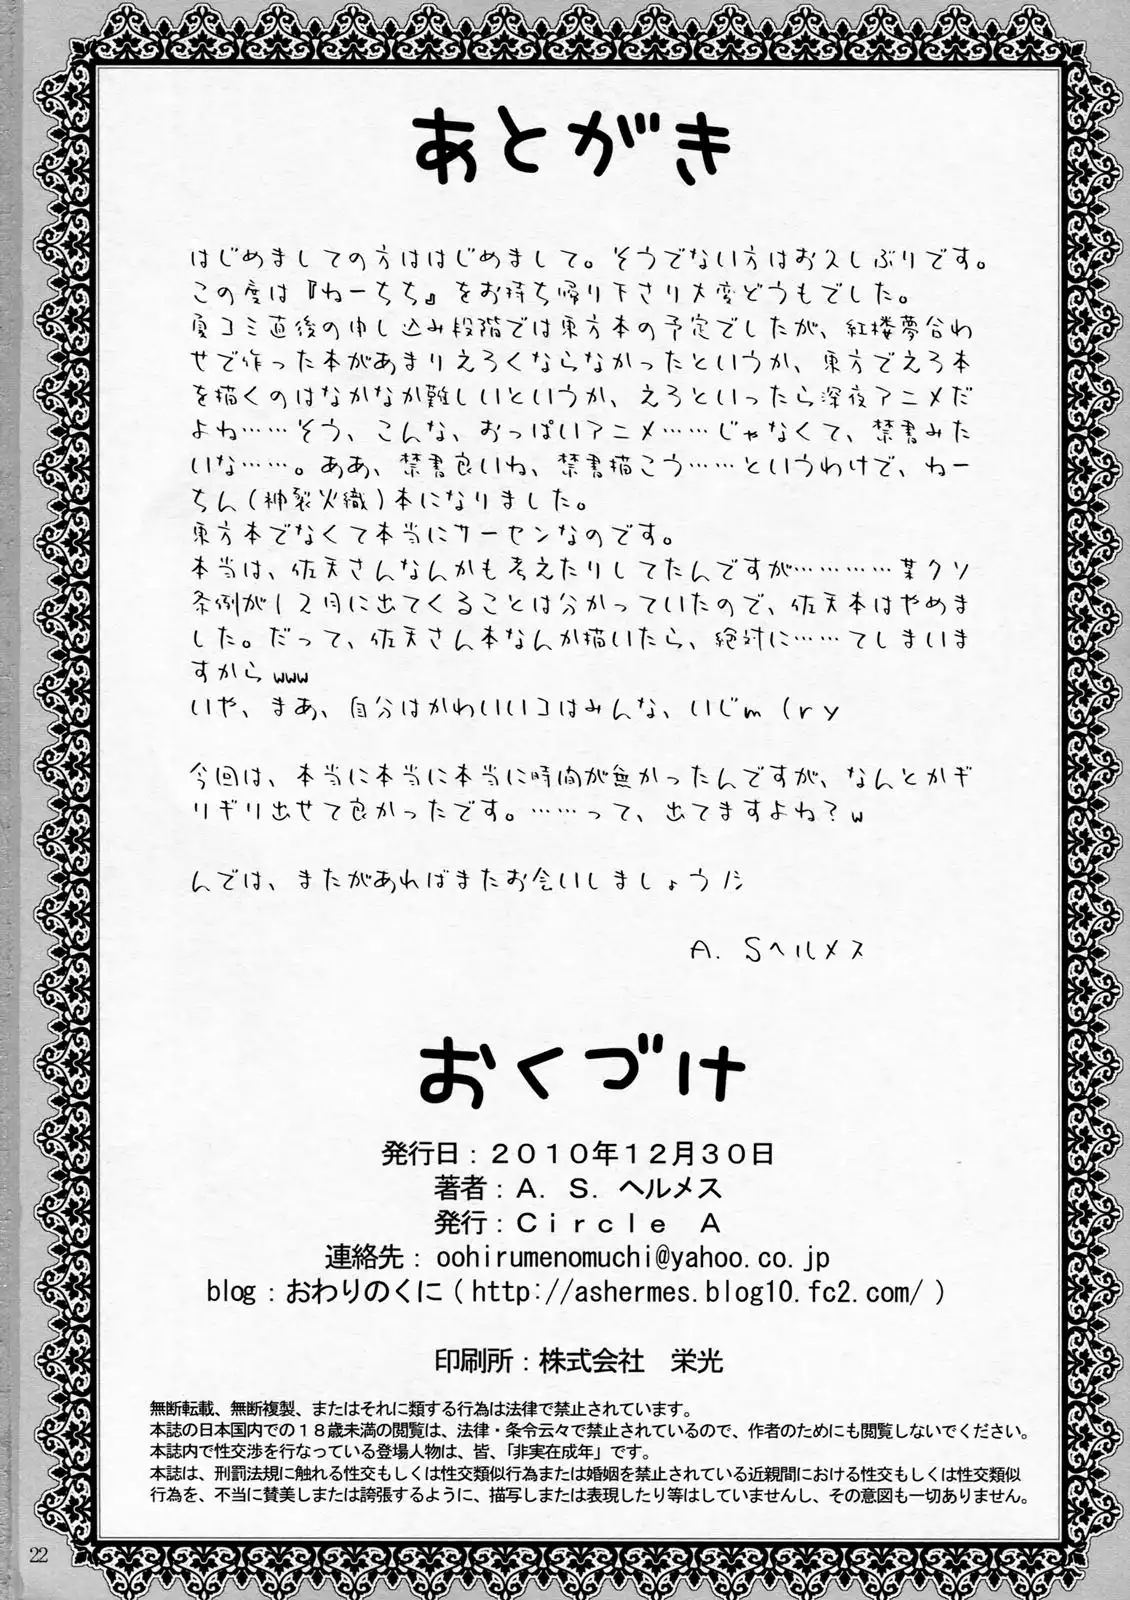 あとがき
はじめましての方ははじめまして。そうでない方はお久しぶりです。
この度は『ねーちち』をお持ち帰り下さり大変どうもでした。
夏コミ直後の申し込み段階では東方本の予定でしたが、紅楼夢合わ
せで作った本があまりえろくならなかったというか、東方でえろ本
を描くのはなかなか難しいというか、えろといったら深夜アニメだ
よね……そう、こんな、おっぱいアニメ……じゃなくて、禁書みた
いな……。ああ、禁書良いね、禁書描こう……というわけで、ねー
ちん(神裂火織)本になりました。
東方本でなくて本当にサーセンなのです。
本当は、佐天さんなんかも考えたりしてたんですが…………某クソ
条例が12月に出てくることは分かっていたので、佐天本はやめま
した。だって、佐天さん本なんか描いたら、絶対に……てしまいま
すからwww
いや、まあ、自分はかわいいコはみんな、いじm(ry
今回は、本当に本当に本当に時間が無かったんですが、なんとかギ
リギリ出せて良かったです。……って、出てますよね？w
んでは、またがあればまたお会いしましょうﾉｼ
A．Sヘルメス
おくづけ
発行日：２０１０年１２月３０日
著者：Ａ．Ｓ．ヘルメス
発行：Ｃｉｒｃｌｅ　Ａ
連絡先：oohirumenomuchi@yahoo.co.jp
blog：おわりのくに(http://ashermes.blog10.fc2.com/)
印刷所：株式会社　栄光
無断転載、無断複製、またはそれに類する行為は法律で禁止されています。
本誌の日本国内での１８歳未満の閲覧は、法律・条令云々で禁止されているので、作者のためにも閲覧しないでください。
本誌内で性交渉を行なっている登場人物は、皆、「非実在成年」です。
本誌は、刑罰法規に触れる性交もしくは性交類似行為または婚姻を禁止されている近親間における性交もしくは性交類似
行為を、不当に賛美しまたは誇張するように、描写しまたは表現したり等はしていませんし、その意図も一切ありません。
22